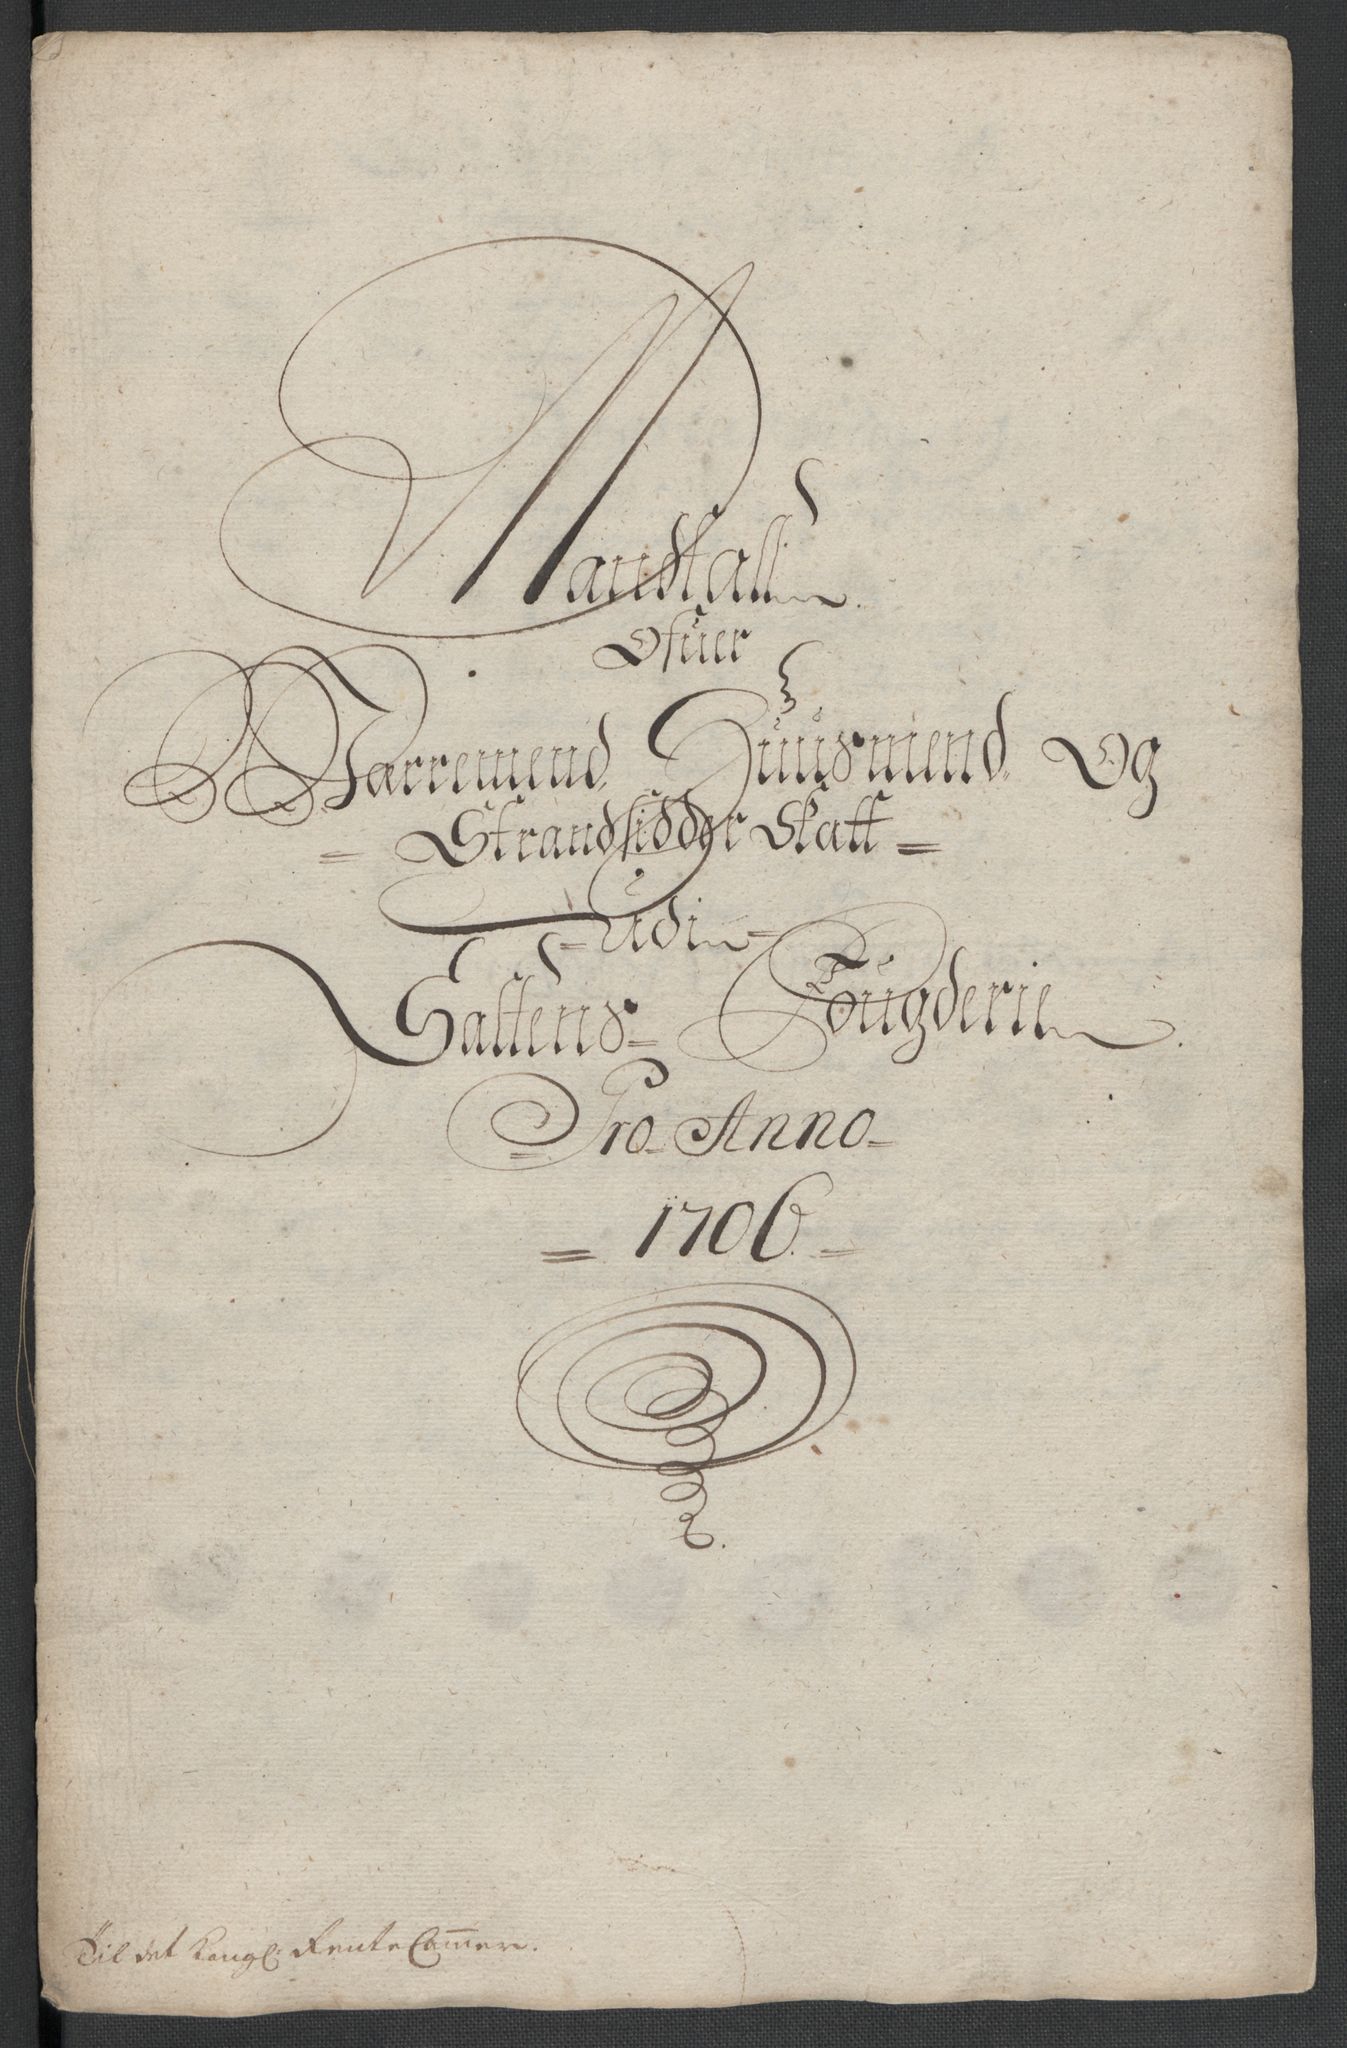 Mandtall
Ofuer
Narremend, Huusmend Og
= Strandsidder Skatt =
- Udi -
Saltens Fougderie
Pro Anno
= 1706. =
Til det Kongl: RenteCammer.